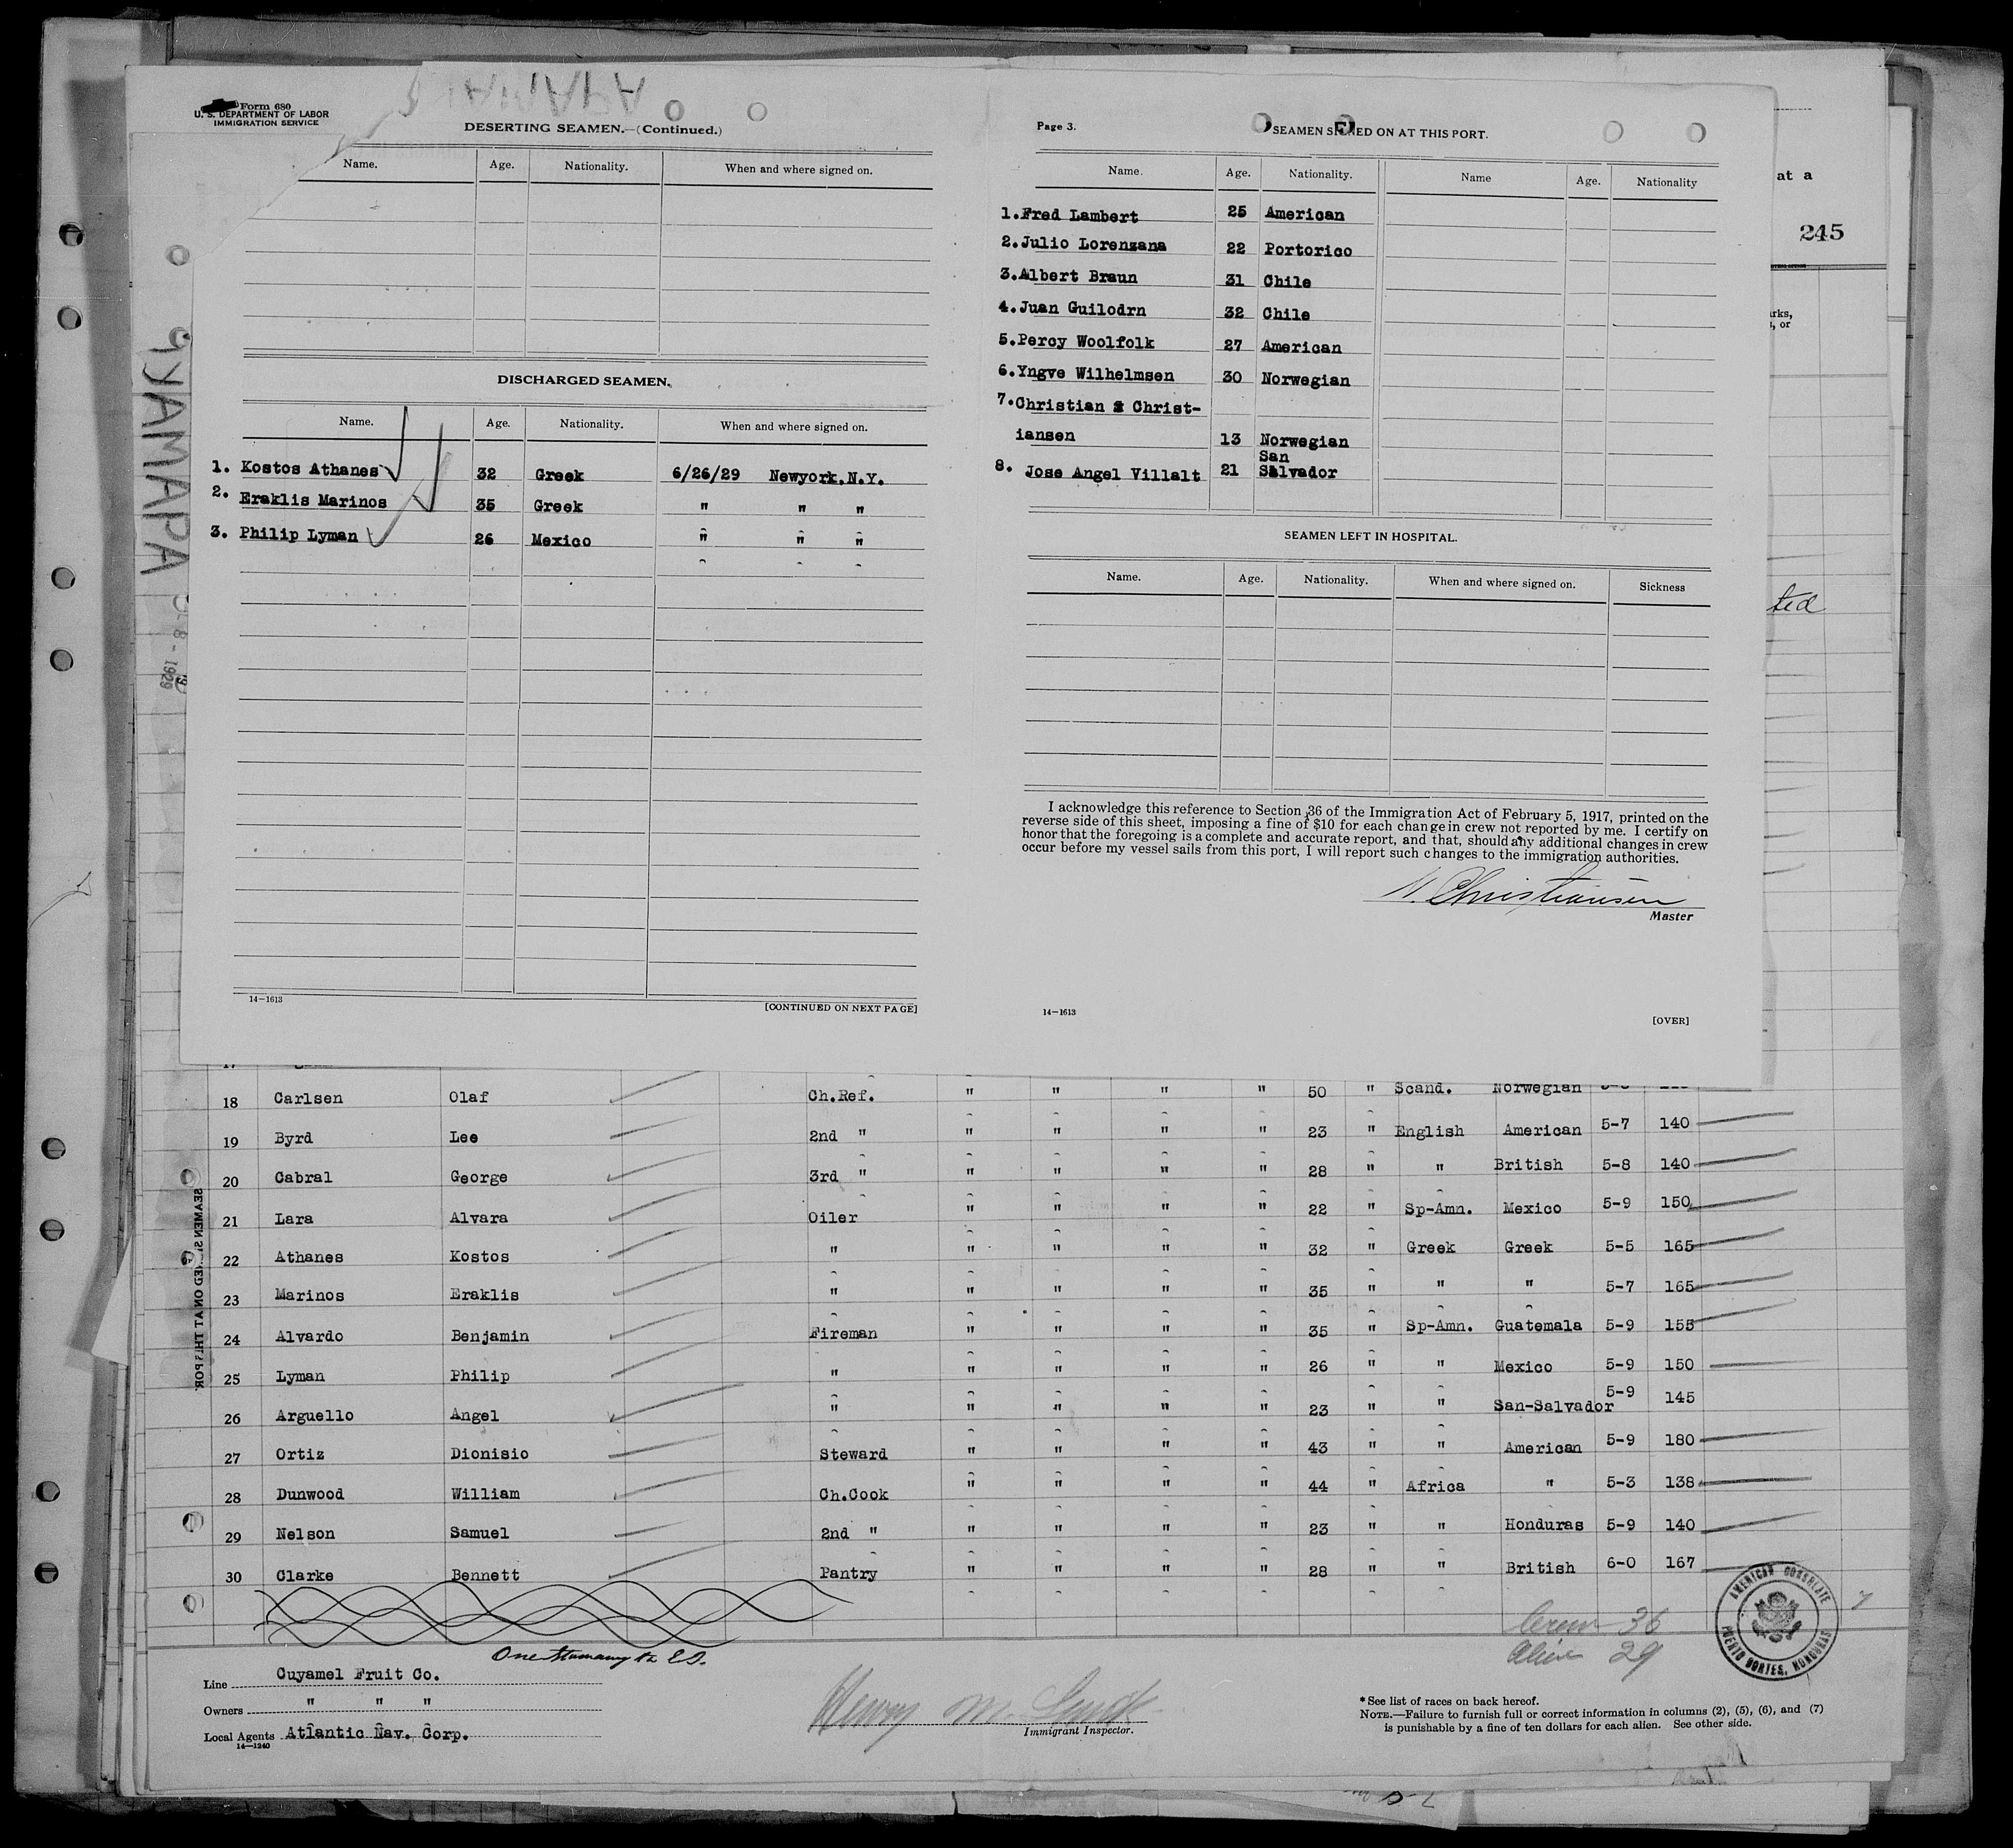 Form 680
U. S. DEPARTMENT OF LABOR
IMMIGRATION SERVICE
DESERTING SEAMEN.—(Continued.)
Name. Age. Nationality. When and where signed on.
DISCHARGED SEAMEN.
Name. Age. Nationality. When and where signed on.
1. Kostos Athanes 32 Greek 6/26/29 Newyork.N.Y.
2. Eraklis Marinos 35 Greek " " "
3. Philip Lyman 26 Mexico " " "
14—1613
[CONTINUED ON NEXT PAGE]
Page 3.
SEAMEN SIGNED ON AT THIS PORT.
Name. Age. Nationality. Name Age. Nationality
1. Fred Lambert 25 American
2. Julio Lorenzana 22 Portorico
3. Albert Braun 31 Chile
4. Juan Guilodrn 32 Chile
5. Percy Woolfolk 27 American
6. Yngve Wilhelmsen 30 Norwegian
7. Christian Christ-
iansen 13 Norwegian
San
8. Jose Angel Villalt 21 Salvador
SEAMEN LEFT IN HOSPITAL.
Name. Age. Nationality. When and where signed on. Sickness
I acknowledge this reference to Section 36 of the Immigration Act of February 5, 1917, printed on the
reverse side of this sheet, imposing a fine of $10 for each change in crew not reported by me. I certify on
honor that the foregoing is a complete and accurate report, and that, should any additional changes in crew
occur before my vessel sails from this port, I will report such changes to the immigration authorities.
N. Christiansen
Master
14—1613
[OVER]
at a
245
rks,
, or
ted
8 - 1929
SEAMEN SIGNED ON AT THIS POR
17
18 Carlsen Olaf Ch.Ref. " " " " 50 " Scand. Norwegian
19 Byrd Lee 2nd " " " " " 23 " English American 5-7 140
20 Cabral George 3rd " " " " " 28 " " British 5-8 140
21 Lara Alvara Oiler " " " " 22 " Sp-Amn. Mexico 5-9 150
22 Athanes Kostos " " " " " 32 " Greek Greek 5-5 165
23 Marinos Eraklis " " " " " 35 " " " 5-7 165
24 Alvardo Benjamin Fireman " " " " 35 " Sp-Amn. Guatemala 5-9 155
25 Lyman Philip " " " " " 26 " " Mexico 5-9 150
26 Arguello Angel " " " " " 23 " " San-Salvador 5-9 145
27 Ortiz Dionisio Steward " " " " 43 " " American 5-9 180
28 Dunwood William Ch.Cook " " " " 44 " Africa " 5-3 138
29 Nelson Samuel 2nd " " " " " 23 " " Honduras 5-9 140
30 Clarke Bennett Pantry " " " " 28 " " British 6-0 167
Crew 36
Alien 29
AMERICAN CONSULATE
PUERTO CORTES, HONDURAS
Line Cuyamel Fruit Co.
Owners " " "
Local Agents Atlantic Nav. Corp.
14—1240
Henry M.
Immigrant Inspector.
* See list of races on back hereof.
NOTE.—Failure to furnish full or correct information in columns (2), (5), (6), and (7)
is punishable by a fine of ten dollars for each alien. See other side.